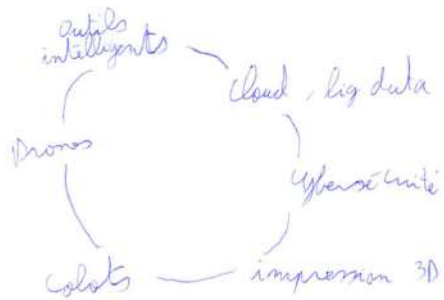 Outils
intelligents
Cloud, big data
Cybersécurité
impression 3D
cobots
Drones